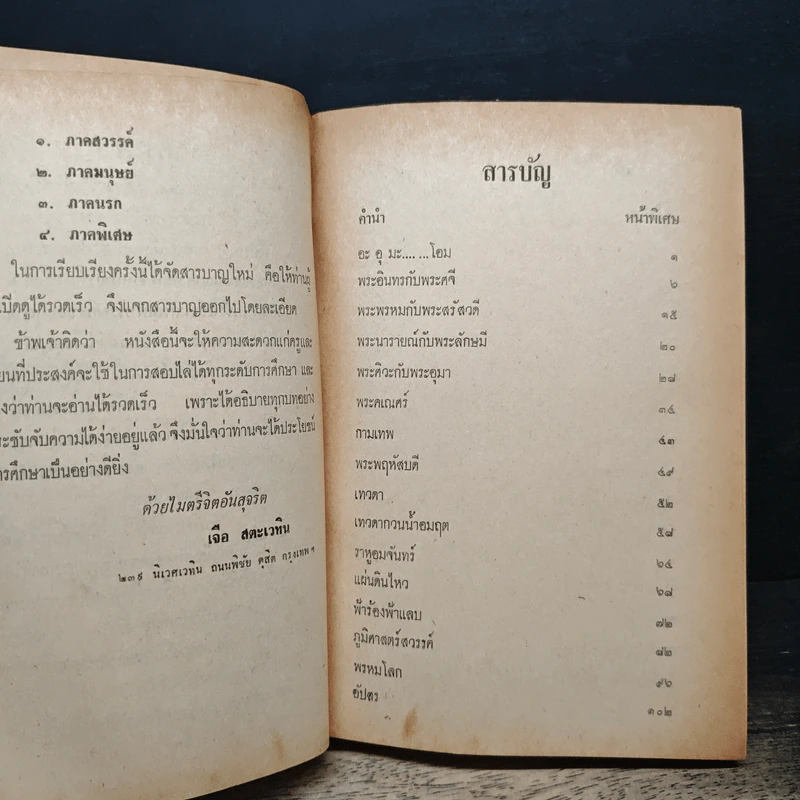 ๑. ภาคสวรรค์
๒. ภาคมนุษย์
๓. ภาคนรก
๔. ภาคพิเศษ
ในการเรียบเรียงครั้งนี้ได้จัดสารบาญใหม่ คือให้ท่านผู้
เปิดดูได้รวดเร็ว จึงแจกสารบาญออกไปโดยละเอียด
ข้าพเจ้าคิดว่า หนังสือนี้จะให้ความสะดวกแก่ครูและ
ยนที่ประสงค์จะใช้ในการสอบไล่ได้ทุกระดับการศึกษา และ
งว่าท่านจะอ่านได้รวดเร็ว เพราะได้อธิบายทุกบทอย่าง
ระชับจับความได้ง่ายอยู่แล้ว จึงมั่นใจว่าท่านจะได้ประโยชน์
ารศึกษาเป็นอย่างดียิ่ง
ด้วยไมตรีจิตอันสุจริต
เจือ สตะเวทิน
๒๓๙ นิเวศเวทิน ถนนพิชัย ดุสิต กรุงเทพ ฯ
สารบัญ
คำนำ หน้าพิเศษ
อะ อุ มะ.... ...โอม ๑
พระอินทรกับพระศจี ๖
พระพรหมกับพระสรัสวดี ๑๕
พระนารายณ์กับพระลักษมี ๒๐
พระศิวะกับพระอุมา ๒๗
พระคเณศร์ ๓๔
กามเทพ ๔๓
พระพฤหัสบดี ๔๙
เทวดา ๕๒
เทวดากวนน้ำอมฤต ๕๘
ราหูอมจันทร์ ๖๔
แผ่นดินไหว ๖๗
ฟ้าร้องฟ้าแลบ ๗๒
ภูมิศาสตร์สวรรค์ ๘๒
พรหมโลก ๙๖
อัปสร ๑๐๒